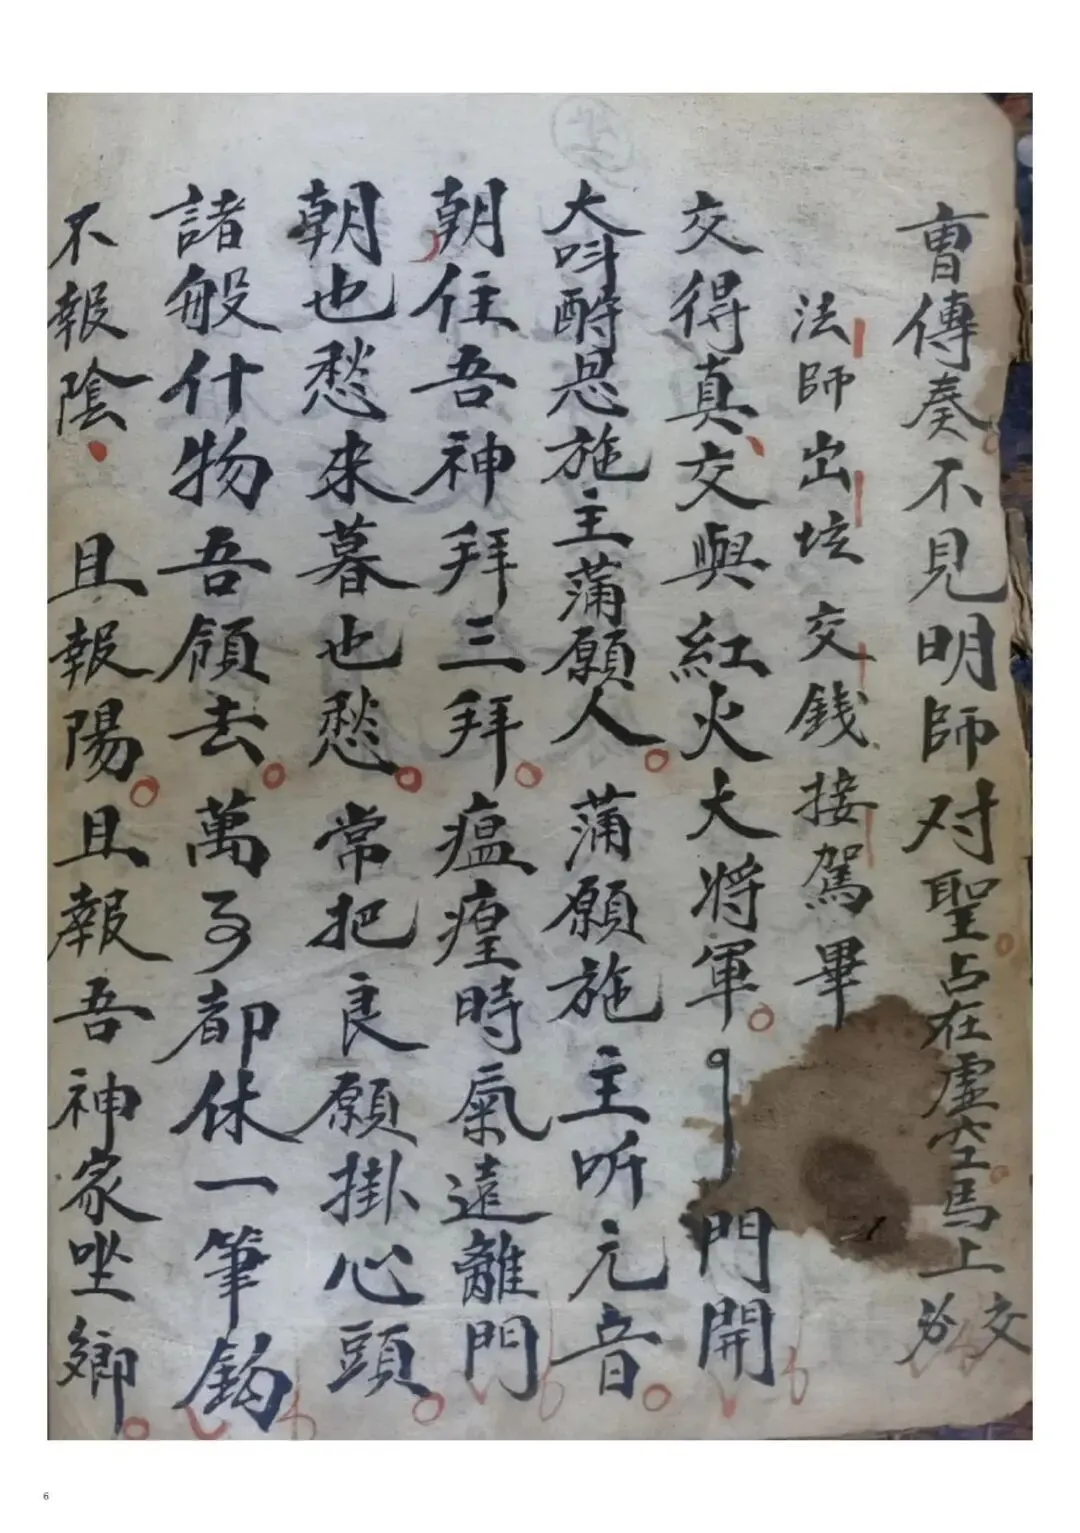 曹傳奏不見明師对聖占在虛空馬上交
法師出坛交錢接駕畢
交得真交與紅火大将軍門開
大呌酧恩施主蒲願人蒲願施主听元音
朝住吾神拜三拜瘟瘟時氣遠離門
朝也愁来暮也愁常把良願掛心頭
諸般什物吾領去萬都休一筆鈎
不報陰且報陽且報吾神家坐鄉
6